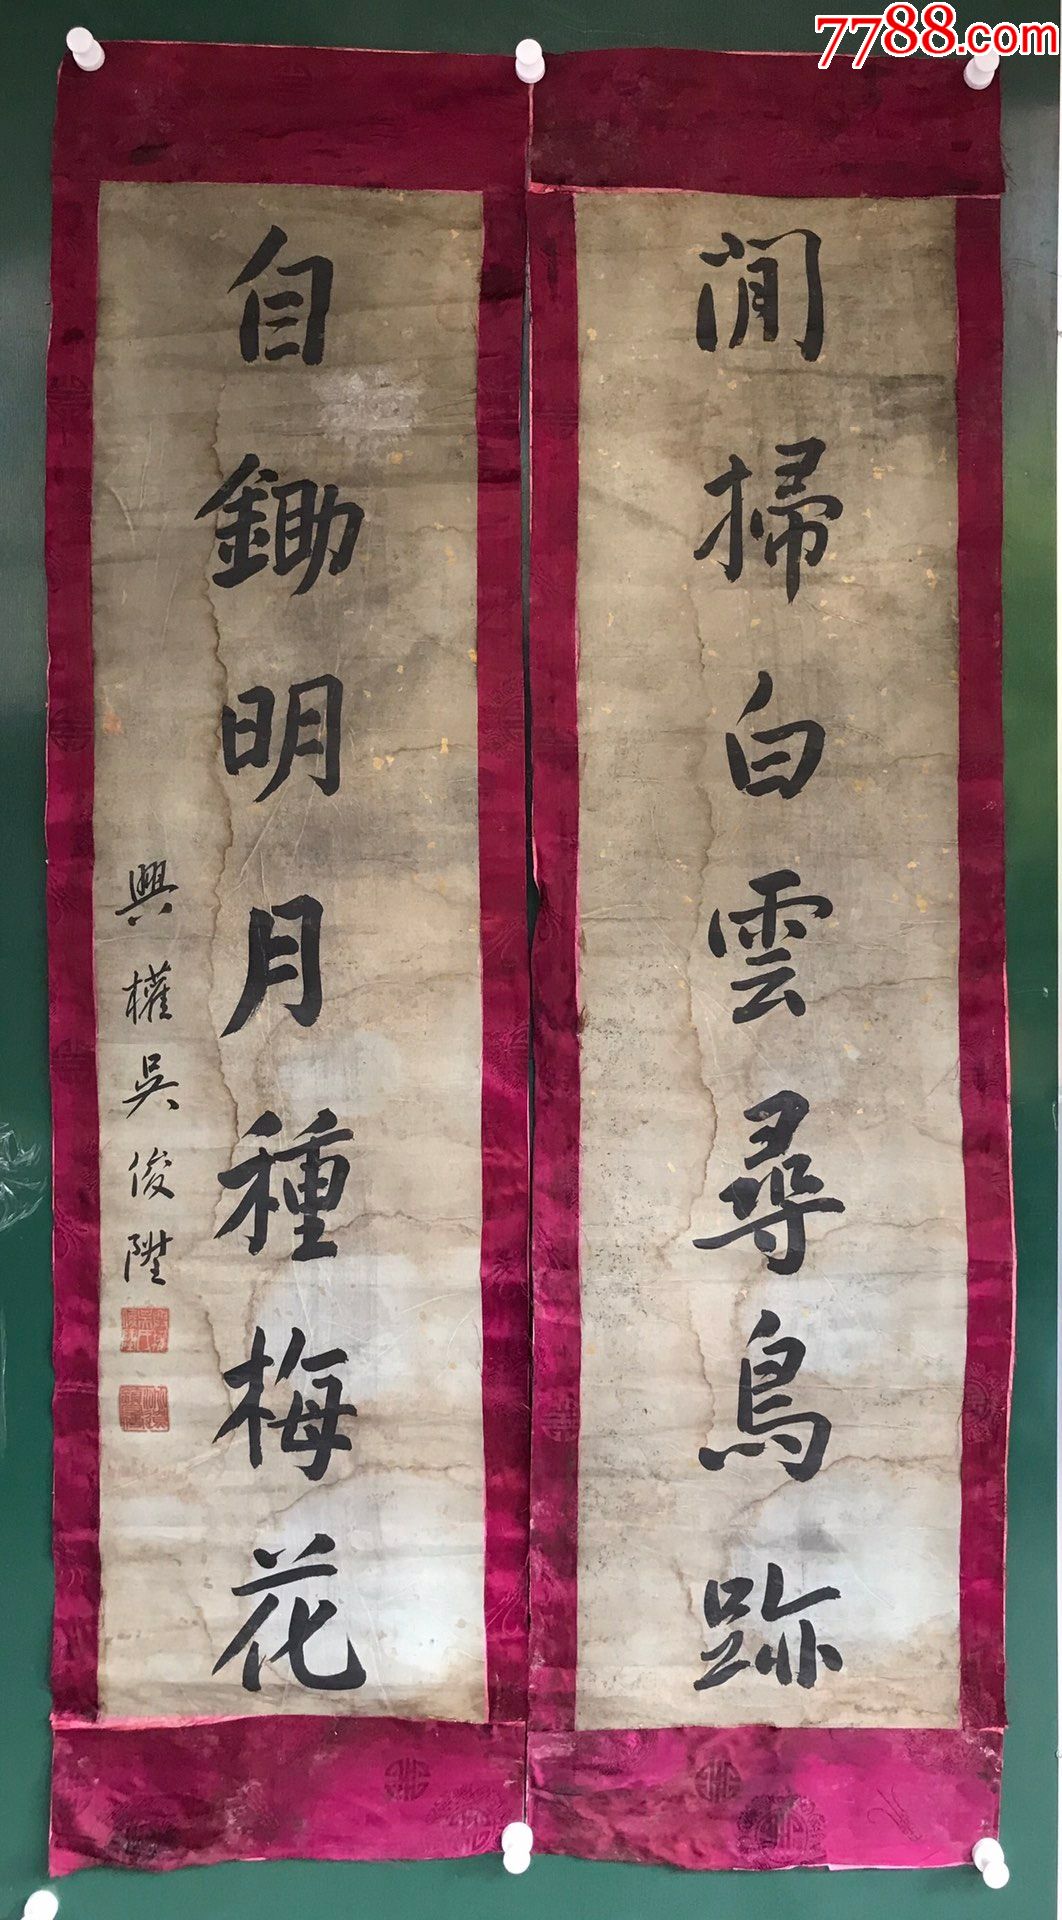 7788.com
閒掃白雲尋鳥跡
自鋤明月種梅花
興權吳俊陞